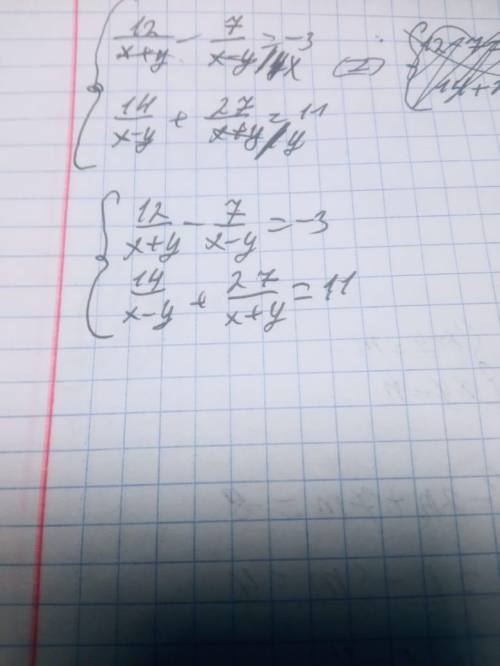 12/(x+y) - 7/(x-y) = -3
14/(x-y) + 27/(x+y) = 11
12/(x+y) - 7/(x-y) = -3
14/(x-y) + 27/(x+y) = 11